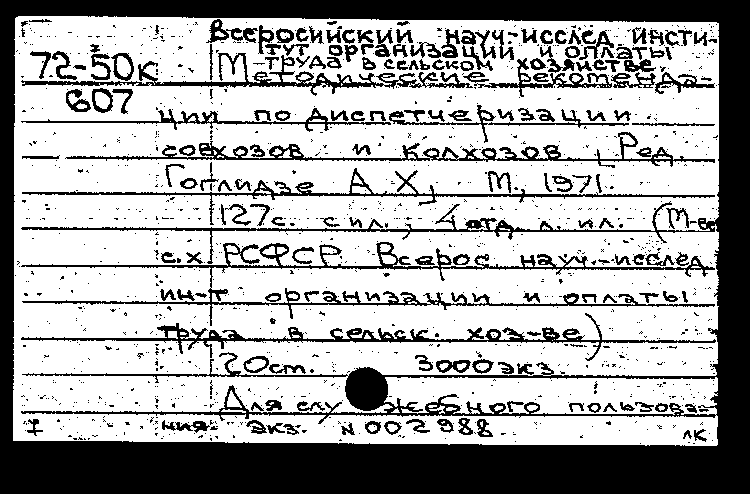 Всеросийский науч-исслед инсти-
тут организации и оплаты
72-50к труда в сельском хозяйстве
Методические рекоменда-
607
ции по диспетчеризации
совхозов и колхозов. [Ред.
Гоглидзе А.Х.] М., 1971.
127с. с ил.; 4 отд. л. ил. (М-во
с.х. РСФСР. Всерос. науч.-исслед.
ин-т организации и оплаты
труда в сельск. хоз-ве)
20ст. 3000 экз.
Для служебного пользова-
I ния. Экз. N 002988. лк